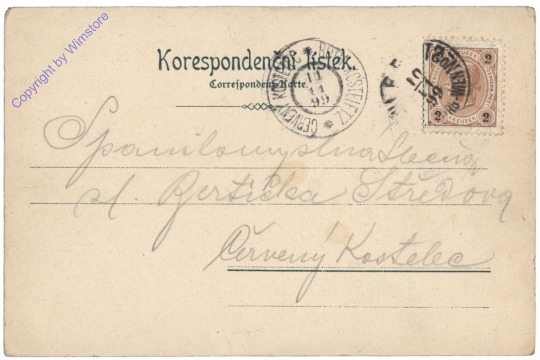 Copyright by Wimstore
Korespondenční lístek.
Correspondenz-Karte.
ČERVENÝ KOSTELEC
11
11
99
2 2
KREUZER
Spanilomyslná Slečna
sl. Bertička Středova
Červený Kostelec